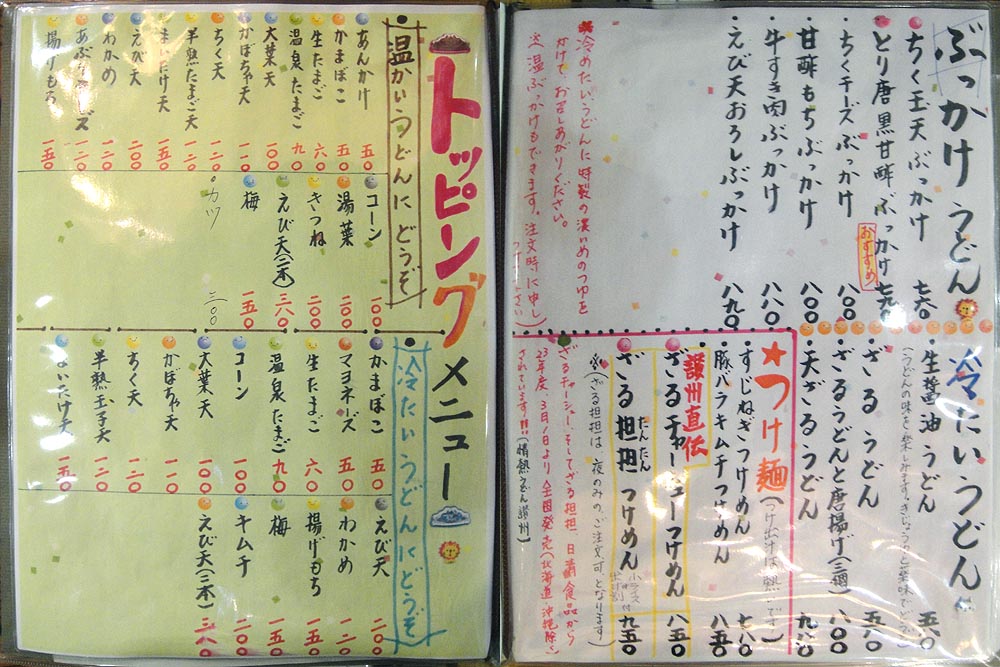 ぶっかけうどん
・ちく玉天ぶっかけ 七六〇
とり唐黒甘酢ぶっかけ 七九〇
おすすめ
・ちくチーズぶっかけ 八〇〇
・甘酢もちぶっかけ 八〇〇
・牛すき肉ぶっかけ 八八〇
・えび天おろしぶっかけ 八九〇
※冷めたいうどんに特製の濃いめのつゆを
かけて、お召しあがりください。
(※温ぶっかけもできます。注文時に申し
つけ下さい)
冷たいうどん
・生醤油うどん 五八〇
・ざるうどん 五八〇
・ざるうどんと唐揚げ(三個) 八〇〇
・天ざるうどん 九八〇
★つけ麺
(つけ出汁は熱いです)
・すじねぎつけめん 七八〇
・豚バラキムチつけめん 八五〇
讃州直伝
ざるチャーシューつけめん 八五〇
ざる担担つけめん 九五〇
たんたん
小ライス付
(※ざる担担は夜のみのご注文可となります)
ざるチャーシュー、そしてざる担担、日清食品から
23年度、3月1日より全国発売(北海道、沖縄除く)
されています!!(情熱うどん讃州)
トッピングメニュー
温かいうどんにどうぞ
あんかけ 五〇
かまぼこ 五〇
生たまご 六〇
温泉たまご 九〇
大葉天 一〇〇
かぼちゃ天 一一〇
ちく天 一二〇
半熟たまご天 一二〇
まいたけ天 一五〇
えび天 二〇〇
わかめ 一二〇
揚げもち 一五〇
コーン 一〇〇
湯葉 二〇〇
きつね 二〇〇
えび天(二本) 三八〇
梅 一五〇
・カツ 三〇〇
冷たいうどんにどうぞ
かまぼこ 五〇
マヨネーズ 五〇
生たまご 六〇
温泉たまご 九〇
コーン 一〇〇
大葉天 一〇〇
かぼちゃ天 一一〇
ちく天 一二〇
半熟玉子天 一二〇
まいたけ天 一五〇
えび天 二〇〇
わかめ 一二〇
揚げもち 一五〇
梅 一五〇
キムチ 二〇〇
えび天(二本) 三八〇